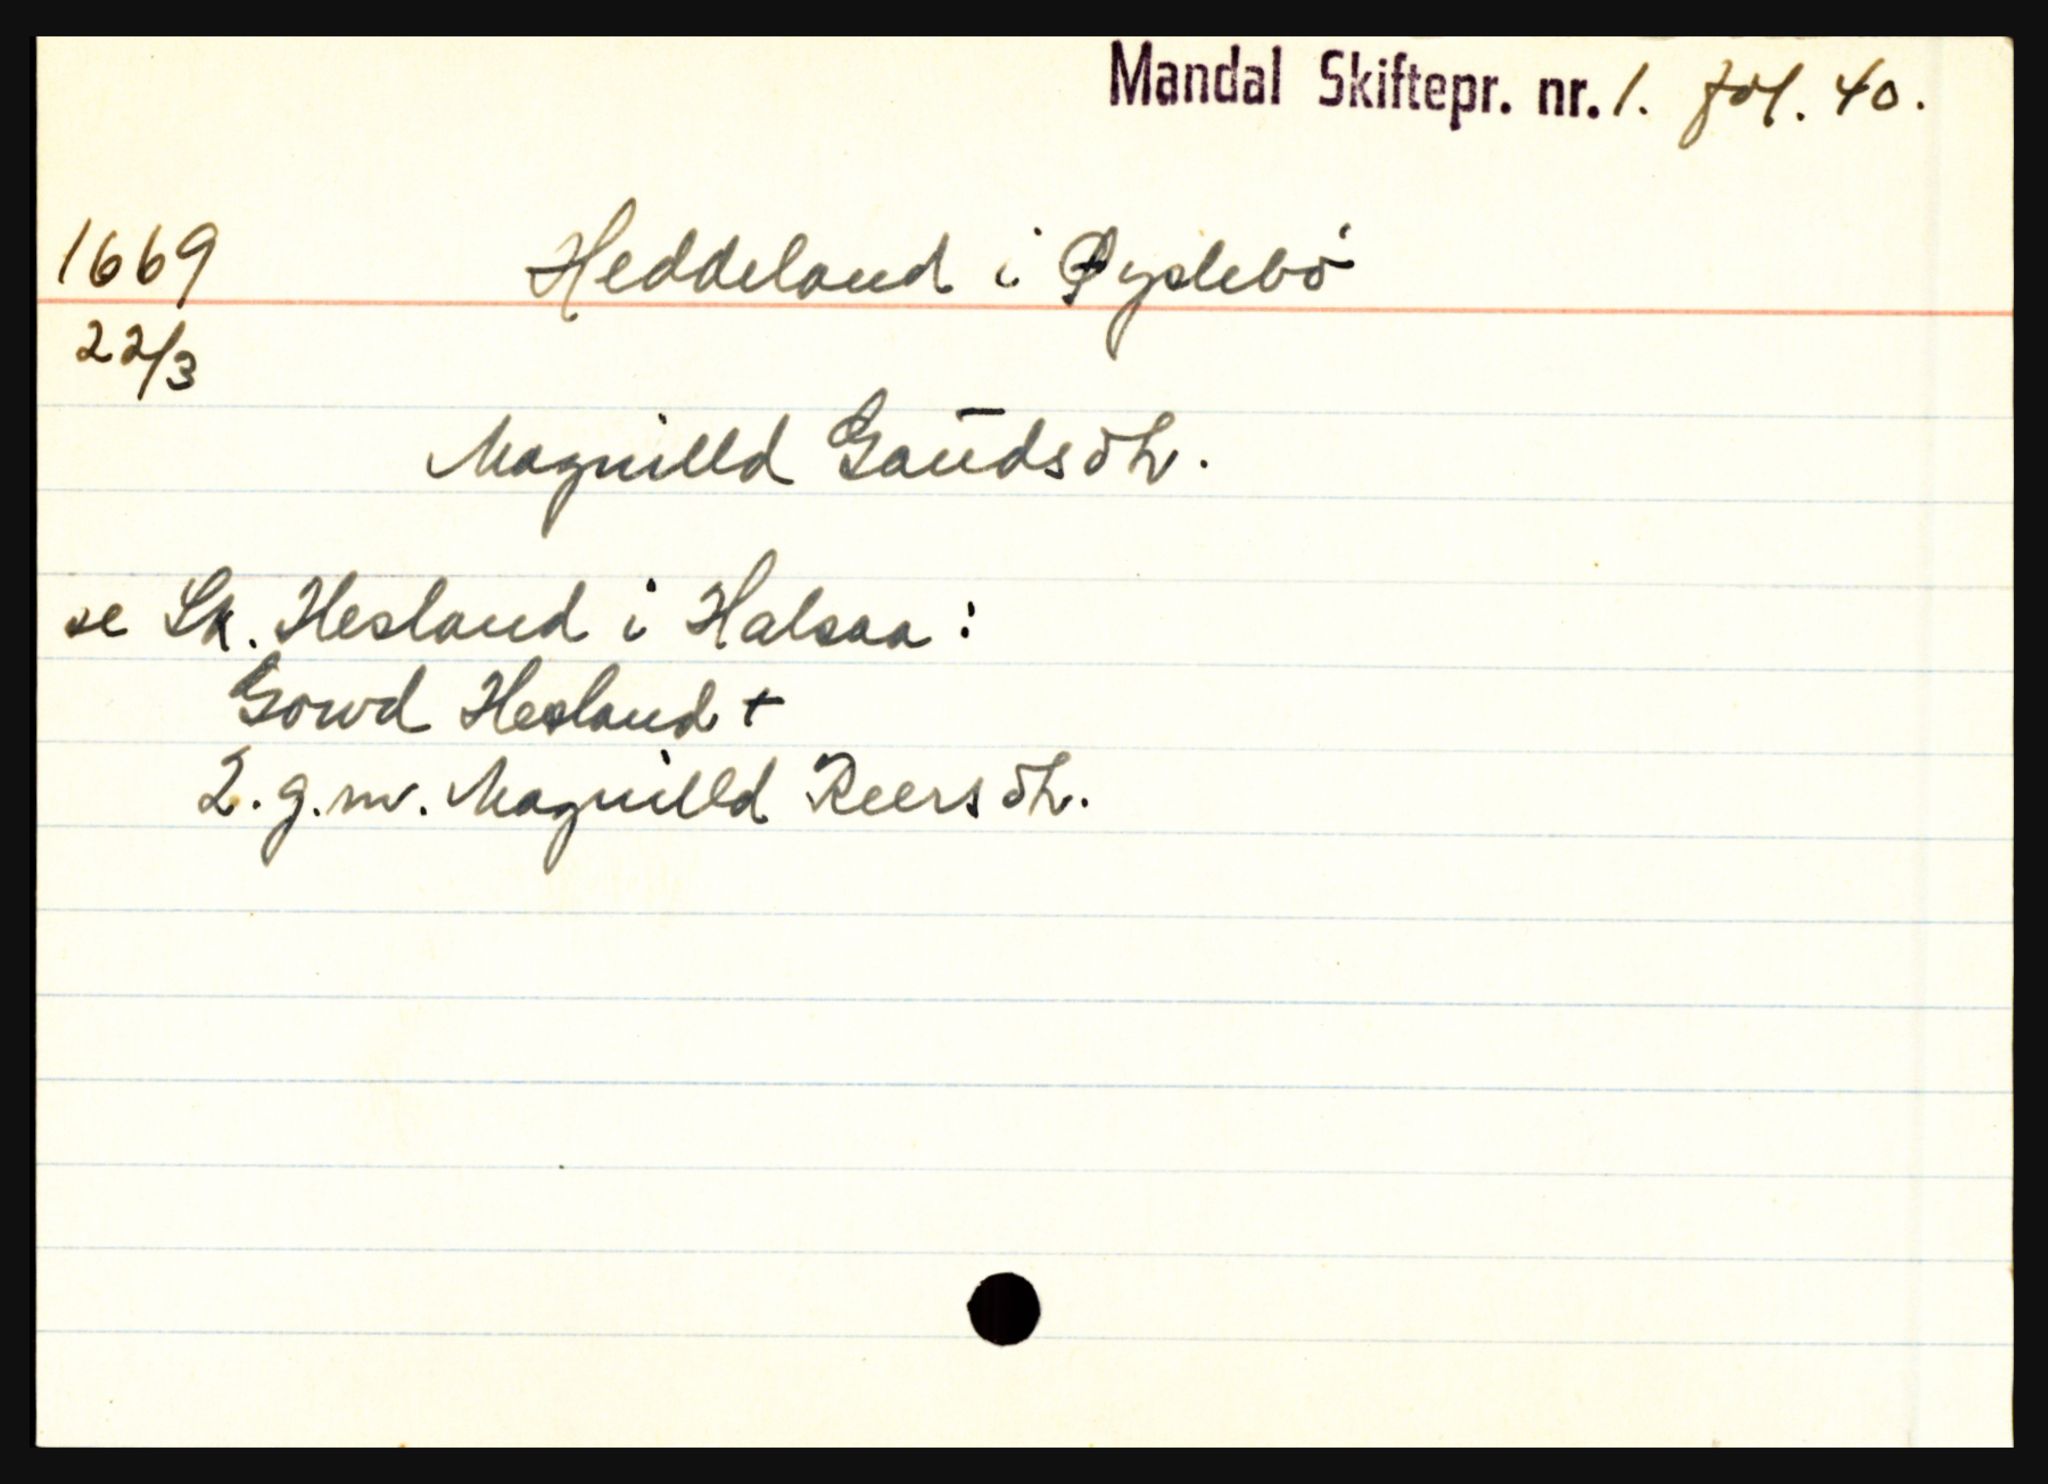 Mandal Skiftepr. nr. 1. fol. 40.
1669 Heddeland i Øyslebø
22/3
Magnilld Gaudsdtr.
se Sk. Hesland i Halsaa:
Gowd Hesland +
2. g. m. Magnilld Reersdtr.